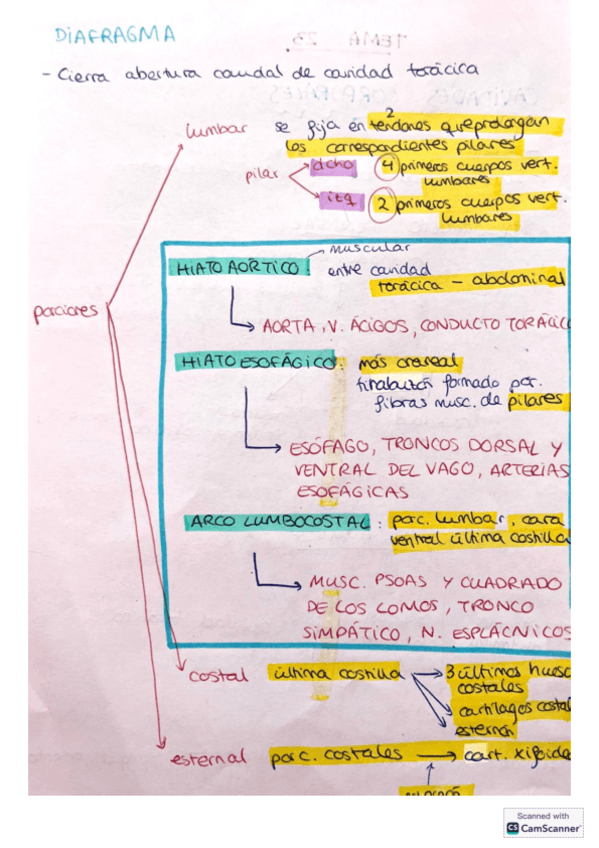 DIAFRAGMA
TEMA 23
- Cierra abertura caudal de cavidad torácica
lumbar se fija en 2 tendones que prolongan
los correspondientes pilares
pilar dcho 4 primeros cuerpos vert.
lumbares
izq 2 primeros cuerpos vert.
lumbares
porciones
HIATO AÓRTICO: muscular
entre cavidad
torácica - abdominal
AORTA, V. ÁCIGOS, CONDUCTO TORÁCIC
HIATO ESOFÁGICO: más craneal
formado por
fibras musc. de pilares
ESÓFAGO, TRONCOS DORSAL Y
VENTRAL DEL VAGO, ARTERIAS
ESOFÁGICAS
ARCO LUMBOCOSTAL: porc. lumbar, cara
ventral última costilla
MUSC. PSOAS Y CUADRADO
DE LOS LOMOS, TRONCO
SIMPÁTICO, N. ESPLÁCNICOS
costal última costilla 3 últimos hueso
costales
cartílagos costal
esternón
esternal porc. costales cart. xifoide
Scanned with
CS CamScanner